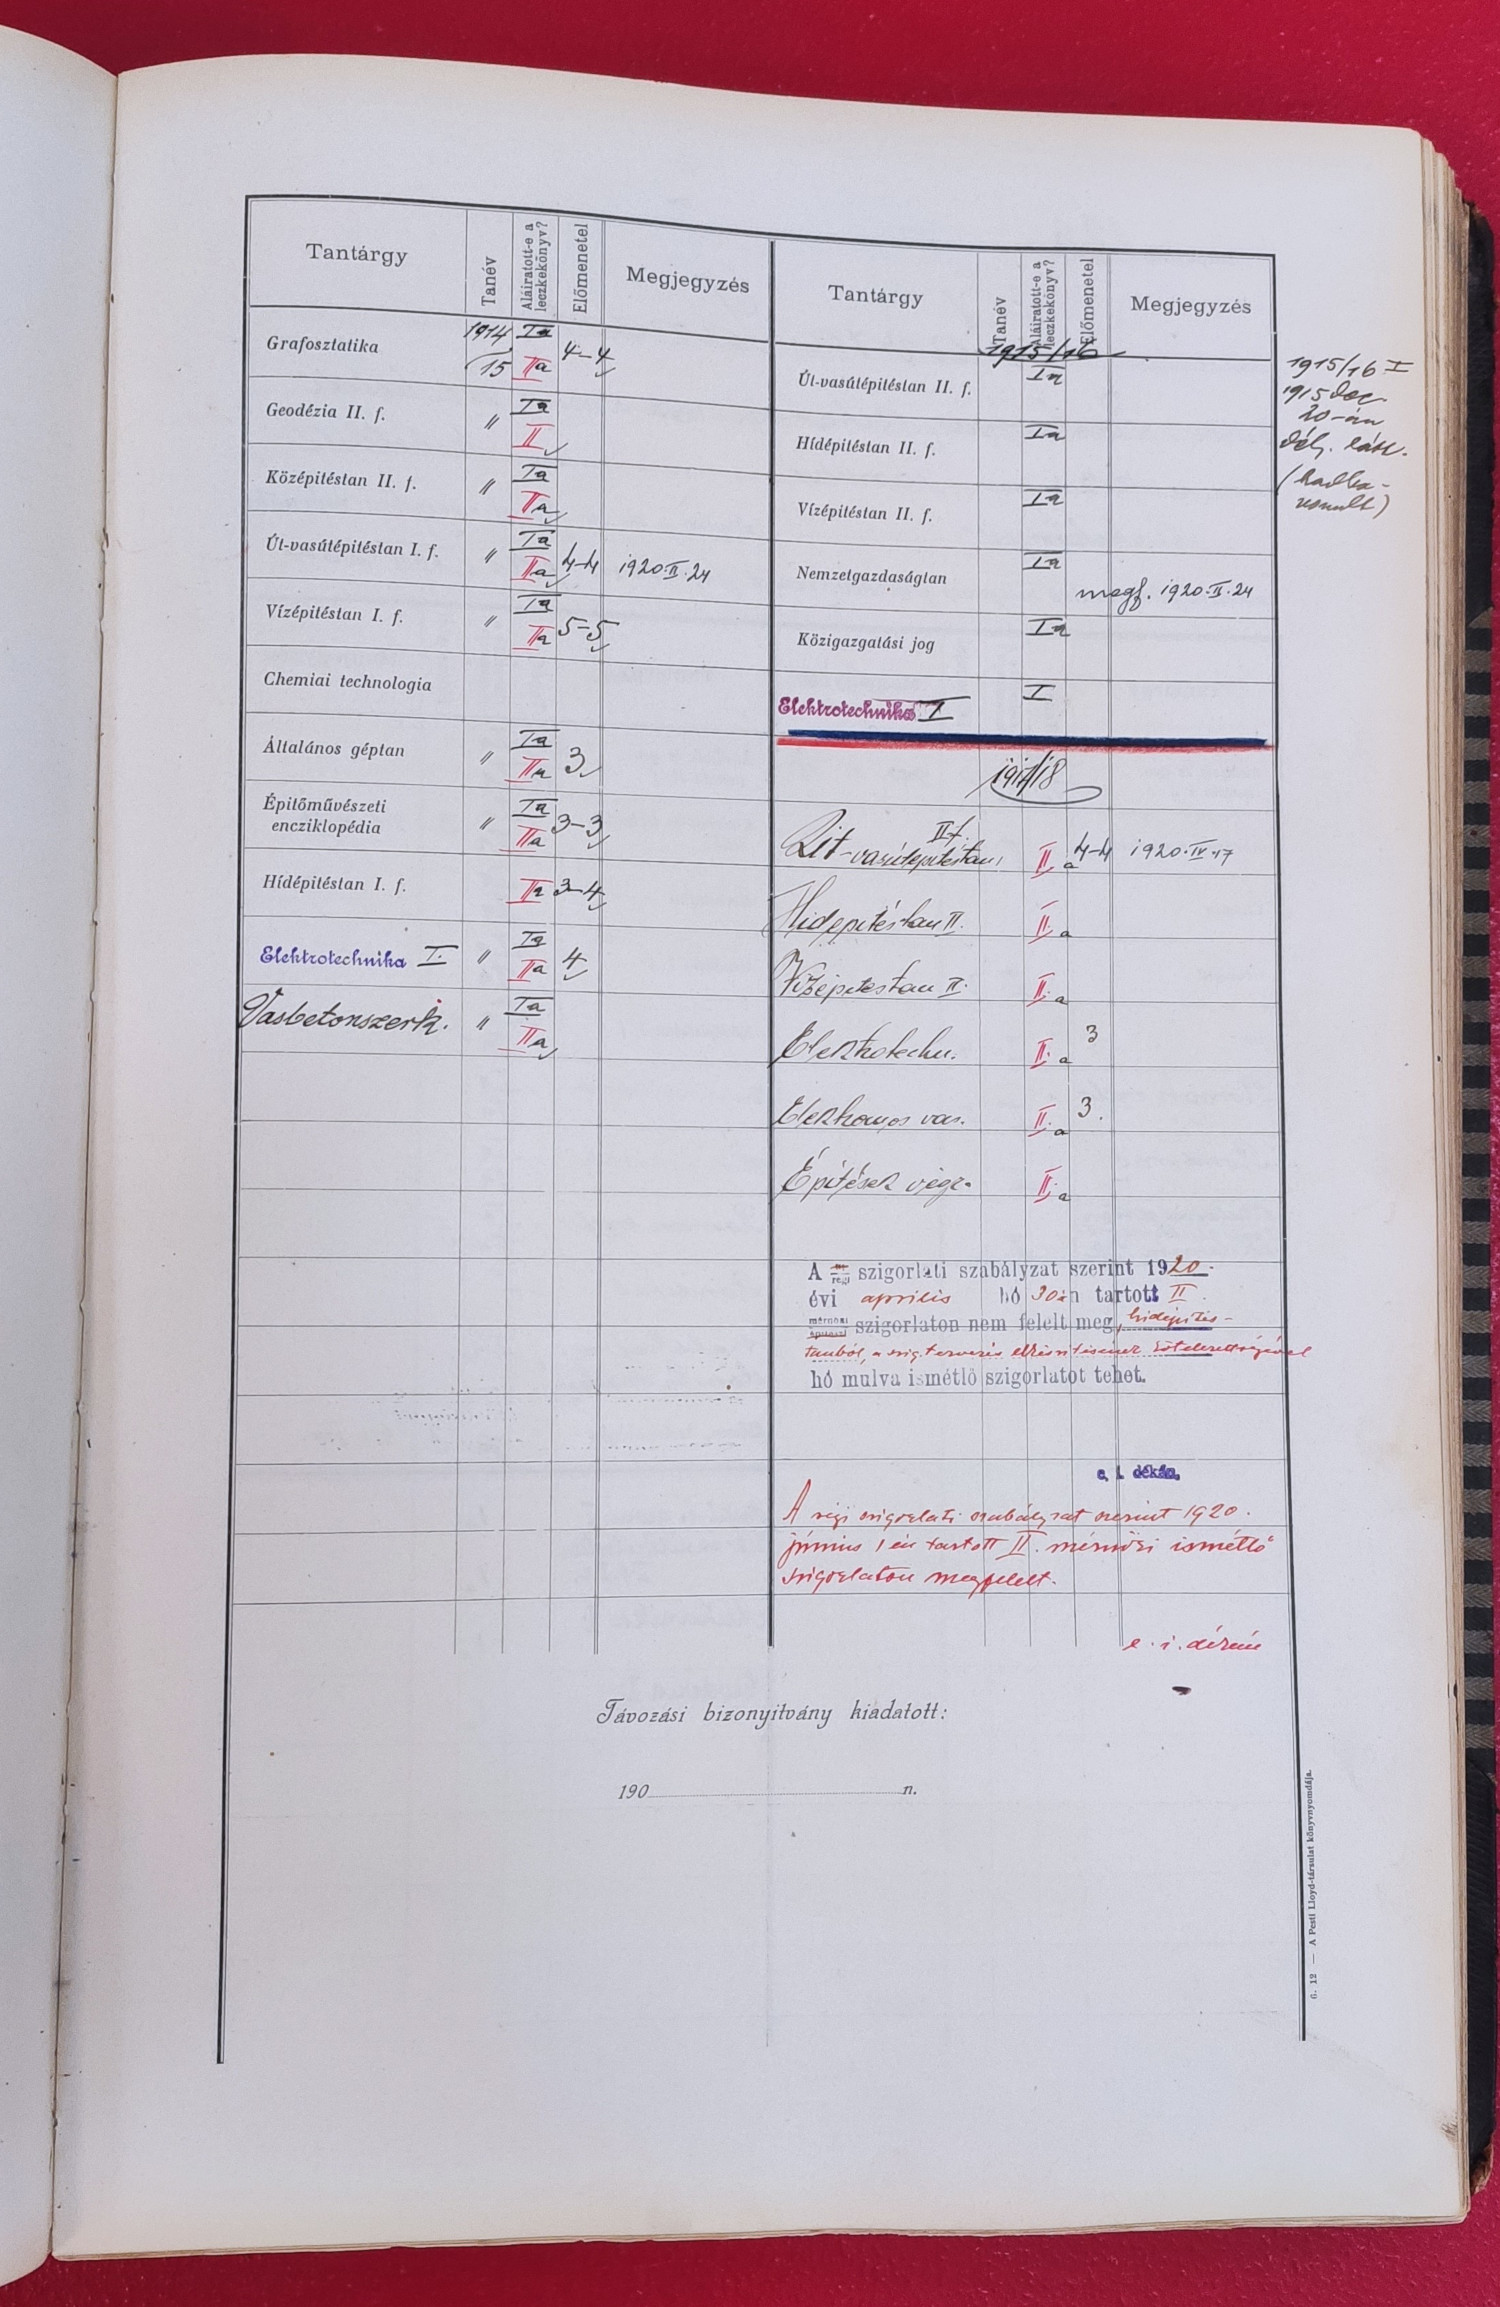 Tantárgy Tanév Aláiratott-e a leczkekönyv? Előmenetel Megjegyzés
Grafosztatika 1914/15 Ia IIa 4-4
Geodézia II. f. " Ia II
Középitéstan II. f. " Ia IIa
Út-vasútépitéstan I. f. " Ia IIa 4-4 1920.II.24
Vízépitéstan I. f. " Ia IIa 5-5
Chemiai technologia
Általános géptan " Ia IIa 3
Épitőművészeti
encziklopédia " Ia IIa 3-3
Hídépitéstan I. f. IIa 3-4
Elektrotechnika I. " Ia IIa 4
Vasbetonszerk. " Ia IIa
Tantárgy Tanév Aláiratott-e a leczkekönyv? Előmenetel Megjegyzés
1915/16
Út-vasútépitéstan II. f. Ia
Hídépitéstan II. f. Ia
Vízépitéstan II. f. Ia
Nemzetgazdaságtan Ia megf. 1920.II.24
Közigazgatási jog Ia
Elektrotechnika I I
1917/18
II f.
Út-vasútépitéstan IIa 4-4 1920.IV.17
Hidépitéstan II. II.a
Vizépitéstan II. II.a
Elektrotechn. II.a 3
Elektromos vas. II.a 3.
Építések végr. II.a
A uj régi szigorlati szabályzat szerint 1920.
évi április hó 30án tartott II.
mérnöki épitészi szigorlaton nem felelt meg, hidépítés-
tanból, a szig. tervezés elkészitésének kötelezettségével
hó mulva ismétlő szigorlatot tehet.
e. i. dékán.
A régi szigorlati szabályzat szerint 1920.
június 1én tartott II. mérnöki ismétlő
szigorlaton megfelelt.
e. i. dékán
1915/16 I
1915 dec.
20-án
(hadba-
vonult)
Távozási bizonyitvány kiadatott:
190 n.
G. 12 — A Pesti Lloyd-társulat könyvnyomdája.